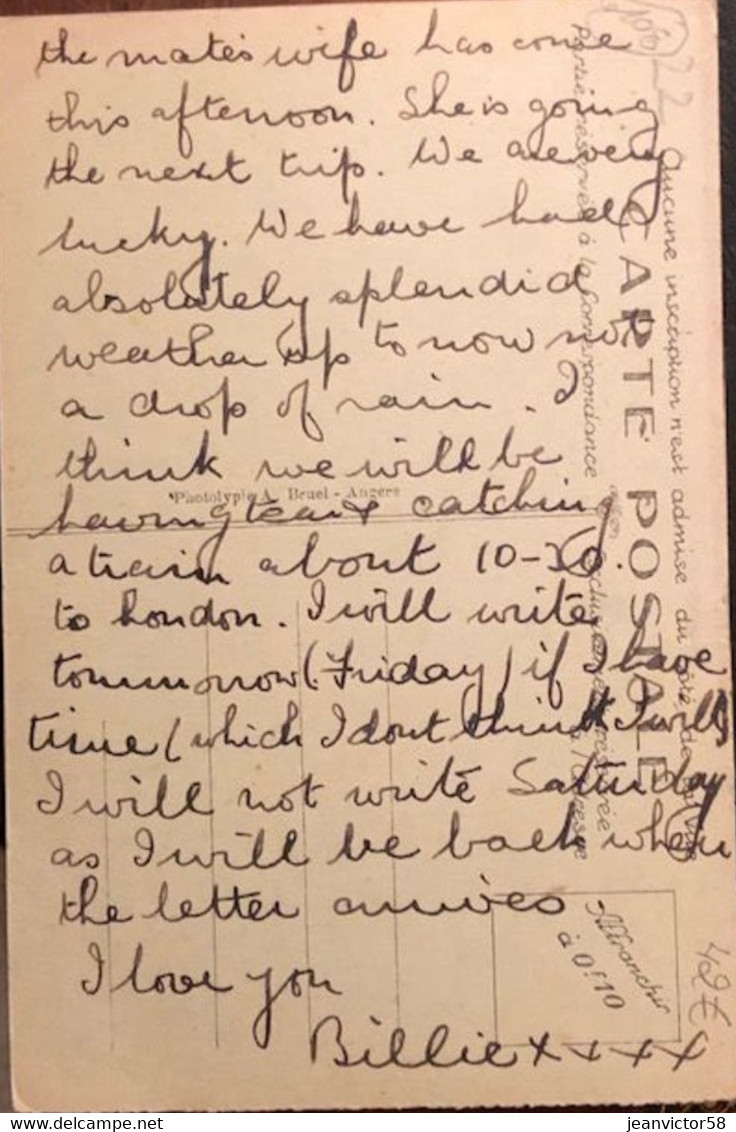 the mate's wife has come
this afternoon. She is going
the next trip. We are very
lucky. We have had
absolutely splendid
weather up to now not
a drop of rain. I
think we will be
having tea & catching
a train about 10-30.
to London. I will write
tommorrow (Friday) if I have
time (which I dont think I will)
I will not write Saturday
as I will be back when
the letter arrives
I love you
Billie x x x x
Phototypie A. Bruel - Angers
CARTE POSTALE
Aucune inscription n'est admise du côté de la vue
Partie réservée à la Correspondance
Affranchir
à 0f10
22
42€
delcampe.net
jeanvictor58